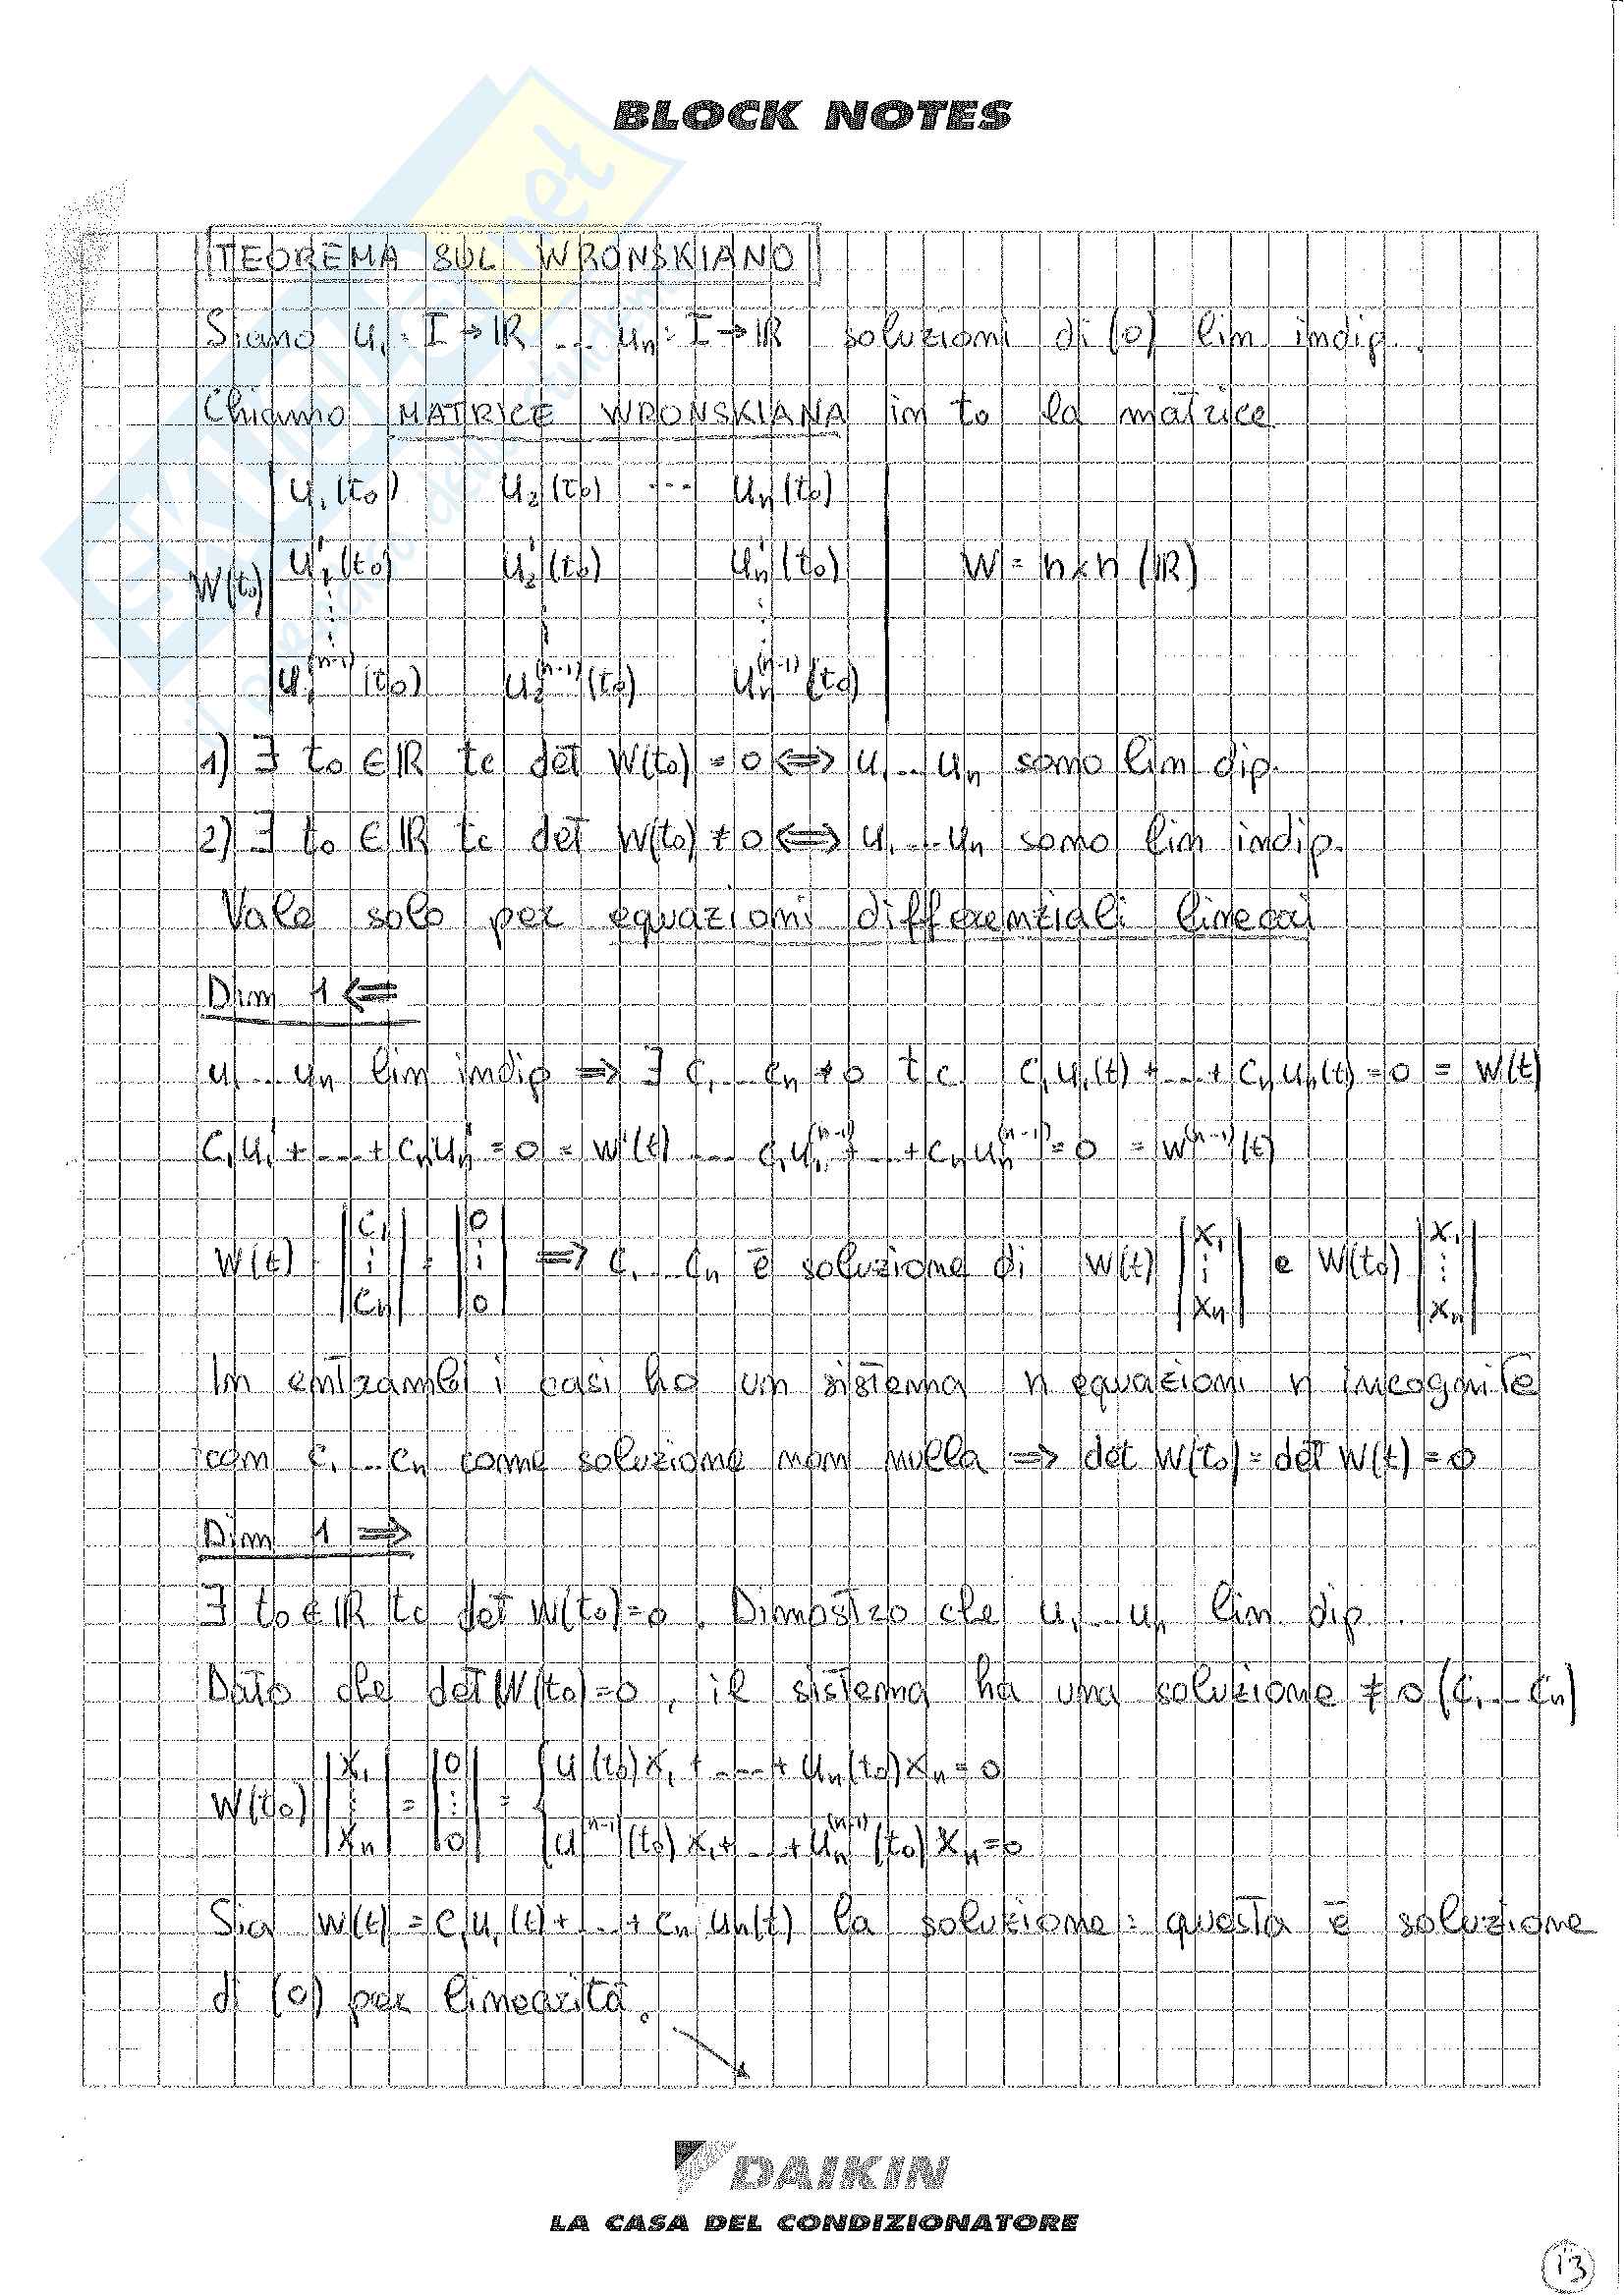 BLOCK NOTES
TEOREMA SUL WRONSKIANO
Siano u₁: I → ℝ ... uₙ: I → ℝ soluzioni di (0) lin indip.
Chiamo MATRICE WRONSKIANA in t₀ la matrice
u₁(t₀) u₂(t₀) ... uₙ(t₀)
W(t₀) u₁'(t₀) u₂'(t₀) uₙ'(t₀) W = n×n (ℝ)
u₁⁽ⁿ⁻¹⁾(t₀) u₂⁽ⁿ⁻¹⁾(t₀) uₙ⁽ⁿ⁻¹⁾(t₀)
1) ∃ t₀ ∈ ℝ tc det W(t₀) = 0 ⟺ u₁ ... uₙ sono lin dip.
2) ∃ t₀ ∈ ℝ tc det W(t₀) ≠ 0 ⟺ u₁ ... uₙ sono lin indip.
Vale solo per equazioni differenziali lineari
Dim 1 ⟸
u₁ ... uₙ lin indip ⟹ ∃ c₁ ... cₙ ≠ 0 t.c. c₁u₁(t) + ... + cₙuₙ(t) = 0 = w(t)
c₁u₁' + ... + cₙuₙ' = 0 = w'(t) ... c₁u₁⁽ⁿ⁻¹⁾ + ... + cₙuₙ⁽ⁿ⁻¹⁾ = 0 = w⁽ⁿ⁻¹⁾(t)
c₁ 0 x₁ x₁
W(t) ⋮ = ⋮ ⟹ c₁ ... cₙ è soluzione di W(t) ⋮ e W(t₀) ⋮
cₙ 0 xₙ xₙ
In entrambi i casi ho un sistema n equazioni n incognite
con c₁ ... cₙ come soluzione non nulla ⟹ det W(t₀) = det W(t) = 0
Dim 1 ⟹
∃ t₀ ∈ ℝ tc det W(t₀) = 0. Dimostro che u₁ ... uₙ lin dip.
Dato che det W(t₀) = 0, il sistema ha una soluzione ≠ 0 (c₁ ... cₙ)
x₁ 0 u₁(t₀)x₁ + ... + uₙ(t₀)xₙ = 0
W(t₀) ⋮ = ⋮ =
xₙ 0 u₁⁽ⁿ⁻¹⁾(t₀)x₁ + ... + uₙ⁽ⁿ⁻¹⁾(t₀)xₙ = 0
Sia w(t) = c₁u₁(t) + ... + cₙuₙ(t) la soluzione: questa è soluzione
di (0) per linearità.
DAIKIN
LA CASA DEL CONDIZIONATORE
13